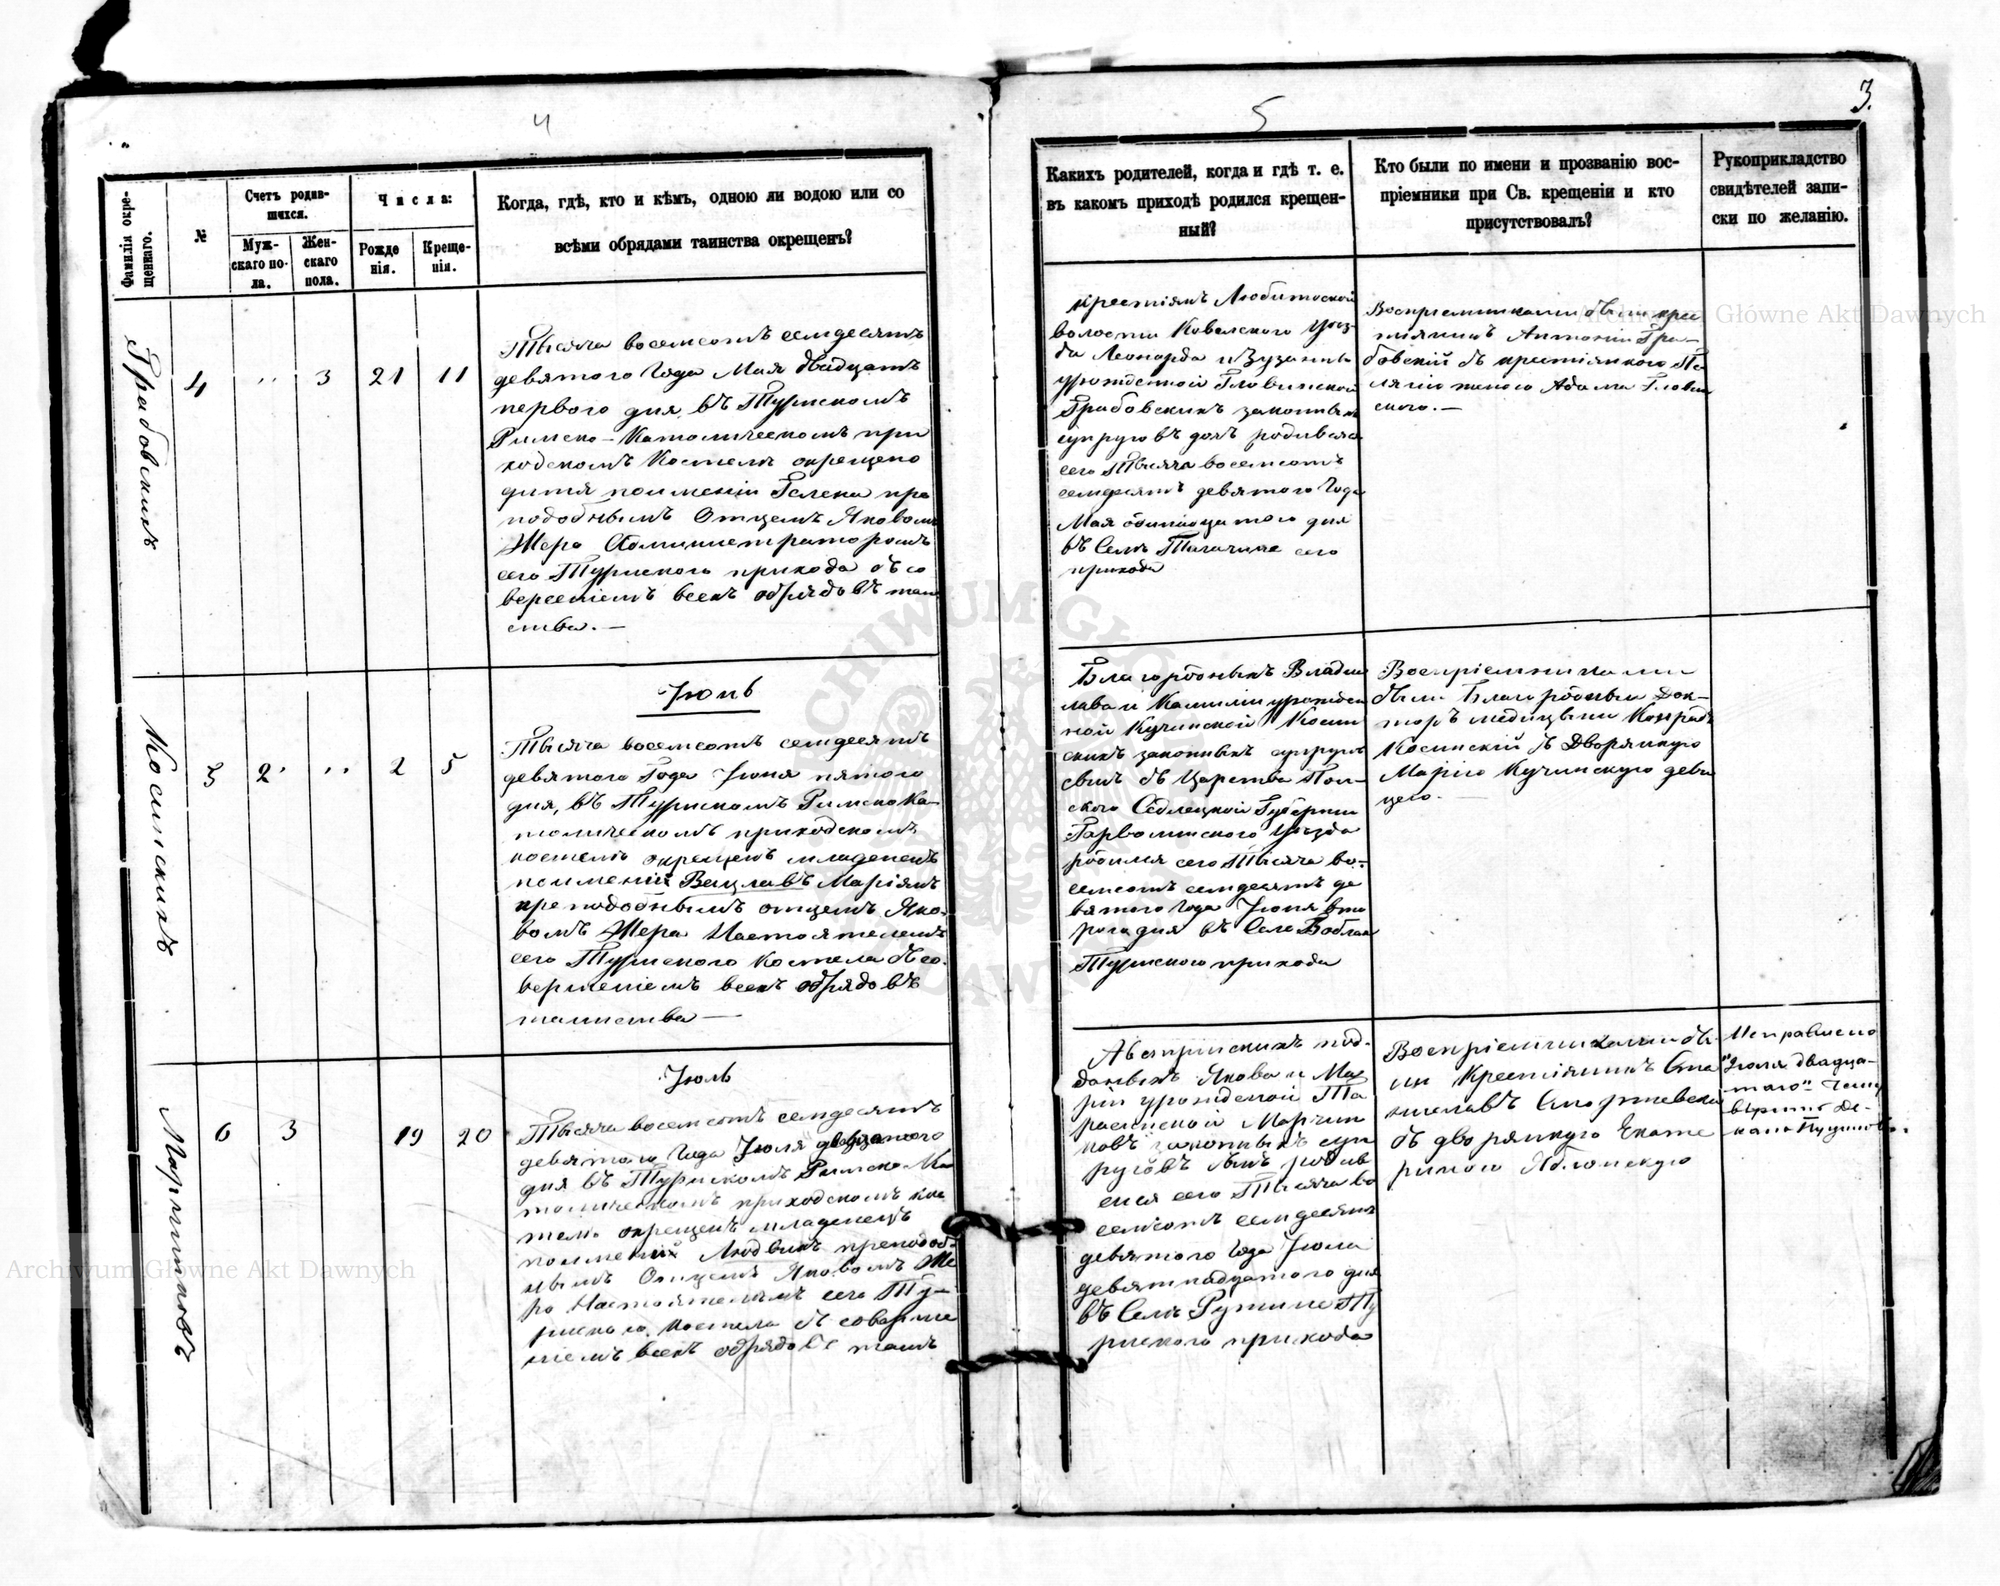 4
Фамилія окре-
щеннаго.
№
Счетъ родив-
шихся.
Муж-
скаго по-
ла.
Жен-
скаго
пола.
Числа:
Рожде
нія.
Креще-
нія.
Когда, гдѣ, кто и кѣмъ, одною ли водою или со
всѣми обрядами таинства окрещенъ?
Грабовскихъ
4
"
3
21
11
Тысяча восемсотъ семдесятъ
девятого Года Мая двадцать
первого дня, въ Турискомъ
Римско-Католическомъ при
ходскомъ Костелѣ окрещено
дитя по имени Гелена пре
подобнымъ Отцемъ Яковомъ
Жеро Администраторомъ
сего Туриского прихода съ со
вершеніемъ всехъ обрядовъ таин
ства.—
Косинскихъ
5
2
"
2
5
Іюнь
Тысяча восемсотъ семдесятъ
девятого Года Іюня пятого
дня, въ Турискомъ Римско Ка-
толическомъ приходскомъ
костелѣ окрещенъ младенецъ
по имени Вацлавъ Маріянъ
преподобнымъ отцемъ Яко-
вомъ Жеро Настоятелемъ
сего Туриского Костела съ со-
вершеніемъ всехъ обрядовъ
таинства—
Мартинковъ
6
3
19
20
Іюль
Тысяча восемсотъ семдесятъ
девятого Года Іюля двадцатого
дня въ Турискомъ Римско Ка
толическомъ приходскомъ кос
телѣ окрещенъ младенецъ
по имени Людвикъ преподоб-
нымъ Отцемъ Яковомъ Же
ро Настоятелемъ сего Ту-
риского Костела съ соверше
ніемъ всехъ обрядовъ таин
5
3.
Какихъ родителей, когда и гдѣ т. е.
въ какомъ приходѣ родился крещен-
ный?
Кто были по имени и прозванію вос-
пріемники при Св. крещеніи и кто
присутствовалъ?
Рукоприкладство
свидѣтелей запи-
ски по желанію.
крестіянъ Любитовской
волости Ковелского Уѣз-
да Леонарда и Зузанны
урожденной Гловинской
Грабовскихъ законныхъ
супруговъ дочь родивша
сего Тысяча восемсотъ
семдесятъ девятого Года
Мая одинадцатого дня
въ Селѣ сего
прихода
Воспріемниками были крес
тіянинъ Антоній Гра-
бовскій съ крестіянкою Пе
лягіею женою Адама Гловин
ского.—
Благородныхъ Владис
лава и Камиліи урожден
ной Кучинской Косин
скихъ законныхъ супруг
сынъ съ Царства Пол-
ского Седлецкой Губерніи
Гарволинского Уѣзда
родился сего Тысяча во-
семсотъ семдесятъ де
вятого Года Іюня вто
рого дня въ Селе Воблы
Туриского прихода
Воспріемниками
были Благородные Док-
торъ медицыны Конрадъ
Косинскій съ Дворянкою
Маріею Кучинскую деви
цею.—
Австрийскихъ под-
данныхъ Якова и Ма
ріи урожденой Та
расинской Мартин
ковъ законныхъ суп
руговъ сынъ родив
шися сего Тысяча во
семсотъ семдесятъ
девятого Года Іюля
девятнадцатого дня
въ Селѣ Ружине Ту
риского прихода
Воспріемниками бы
ли Крестіянинъ Ста
ниславъ
съ дворянкую Екате
риною Яблонскую
Исправлено
"Іюля двадца-
таго"
вѣрно де-
канъ
Archiwum Główne Akt Dawnych
Archiwum Główne Akt Dawnych
ARCHIWUM GŁÓWNE AKT DAWNYCH